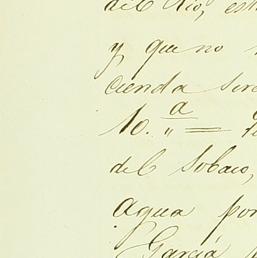 del Rio, est
y que no
cienda ser
10.ª =
del Sobaco,
agua por
Garcia